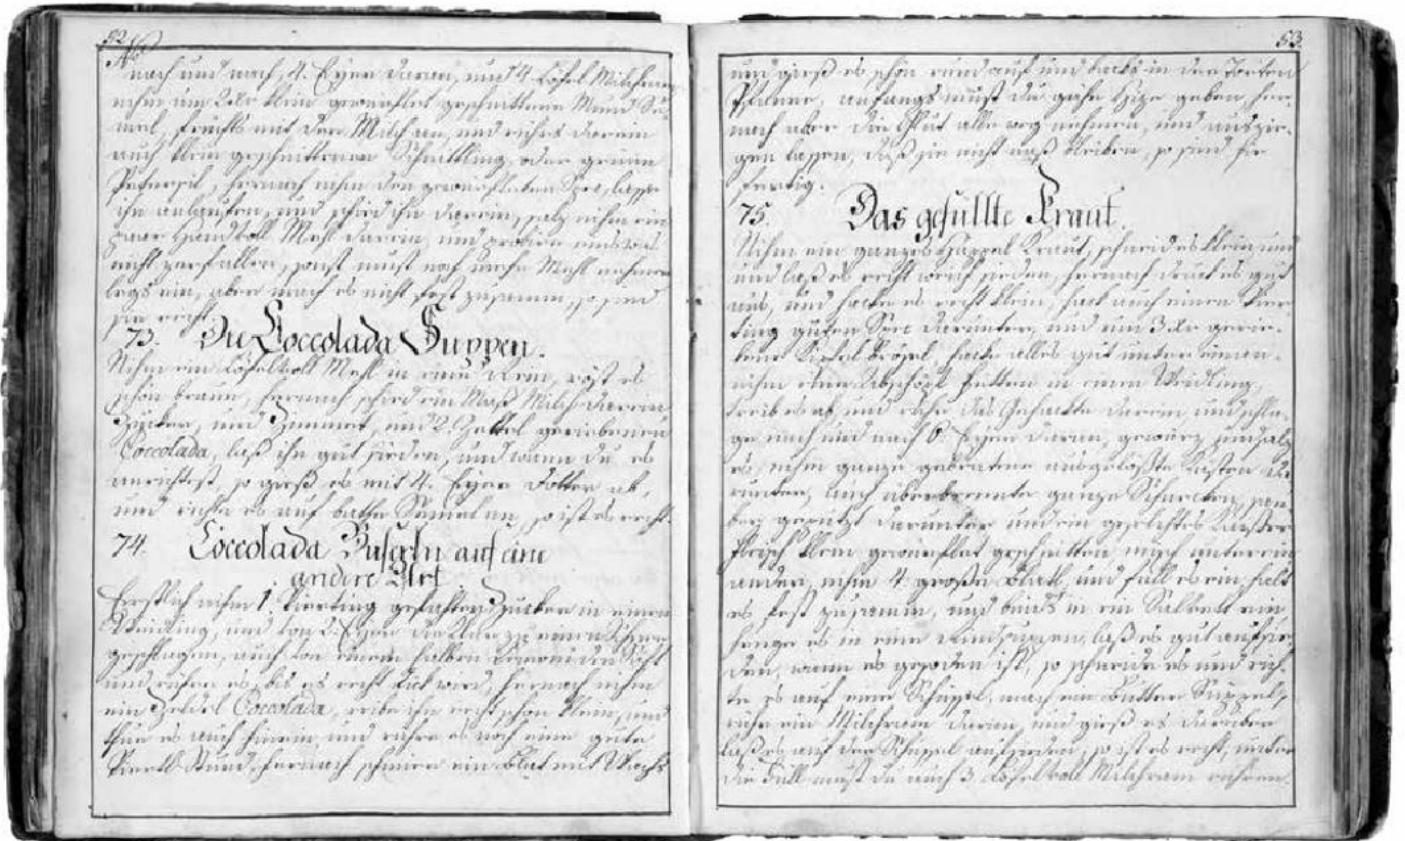 52
No
nach und nach, 4. Eyer daran, und 4 Löfel Milchram
nihm um 2 Kr klein gewürflet geschnittene Mund Se-
mel, feuchts mit der Milch an, und rühre darein
auch klein geschnittenen Schnittling, oder grünen
Petersil, hernach nihm den gewürfleten Spec, lasse
ihn anlaufen, und schütt ihn darein, salz nihm ein
paar Handvoll Mehl darein, und probier eins obs
nicht zerfallen, sonst must noch mehr Mehl nehmen
legs ein, aber mach es nicht fest zusamm, so seind
sie recht.
73. Die Coccolada Suppen.
Nihm ein Löfelvoll Mehl in eine Rein, röst es
schön braun, hernach schütt ein Maß Milch darein
Zucker, und Zimmet, und 2. Zeltel geriebenen
Coccolada, laß ihn gut sieden, und wann du es
anrichtest, so gieß es mit 4. Eyer Dotter ab,
und richte es auf bahte Semel an, so ist es recht.
74. Coccolada Busserln auf eine
andere Art
Erstlich nihm 1. Vierting gefähten Zucker in einen
Weidling, und von 2. Eyer die Klar zu einen Schnee
geschlagen, auch von einem halben Lemoni den Saft
und rühre es, bis es recht dick wird, hernach nihm
ein Zeldel Coccolada, reibe ihn recht schön klein, und
thue es auch hinein und rühre es noch eine gute
Viertl Stund, hernach schmire ein Blat mit Wachs
53
und gieß es schön rund auf und backs in der Torten
Pfanne, anfangs must du gähe Hize geben, her-
nach aber die Glut alle weg nehmen, und
lassen, daß sie nicht naß bleiben, so seind sie
fertig.
75. Das gefüllte Kraut
Nihm ein ganzes Happel Kraut, schneid es klein, und
und laß es recht weich sieden, hernach druck es gut
aus, und hacke es recht klein, hack auch einen Vier-
ting guten Spec darunter, und um 3 Kr gerie-
bene Brösel, hacke alles gut unter einan.
nihm einen Abschöpf Fetten in einen Weidling,
treib es ab, und rühr das Gehackte darein, und schla-
ge nach und nach 6 Eyer daran, gewürz und salz
es, nihm ganze gebratene ausgelößte Kästen da-
runter, auch überbrennte ganze Schnecken, sau-
ber gepuzt darunter und ein geselchtes
fleisch klein gewürflet geschnitten misch unterein
ander, nihm 4 große Blatl, und füll es ein halt
es fest zusamm, und binds in ein Salvetl ein
henge es in eine Rindsuppen, laß es gut aufsie-
den, wann es gesoden ist, so schneide es und rich-
te es auf eine Schüssel, mach ein Butter Süppel,
rühr ein Milchram daran, und gieß es darüber
laß es auf der Schüssel aufsieden, so ist es recht, unter
die Füll must du auch 3 Löfelvoll Milchram rühren.